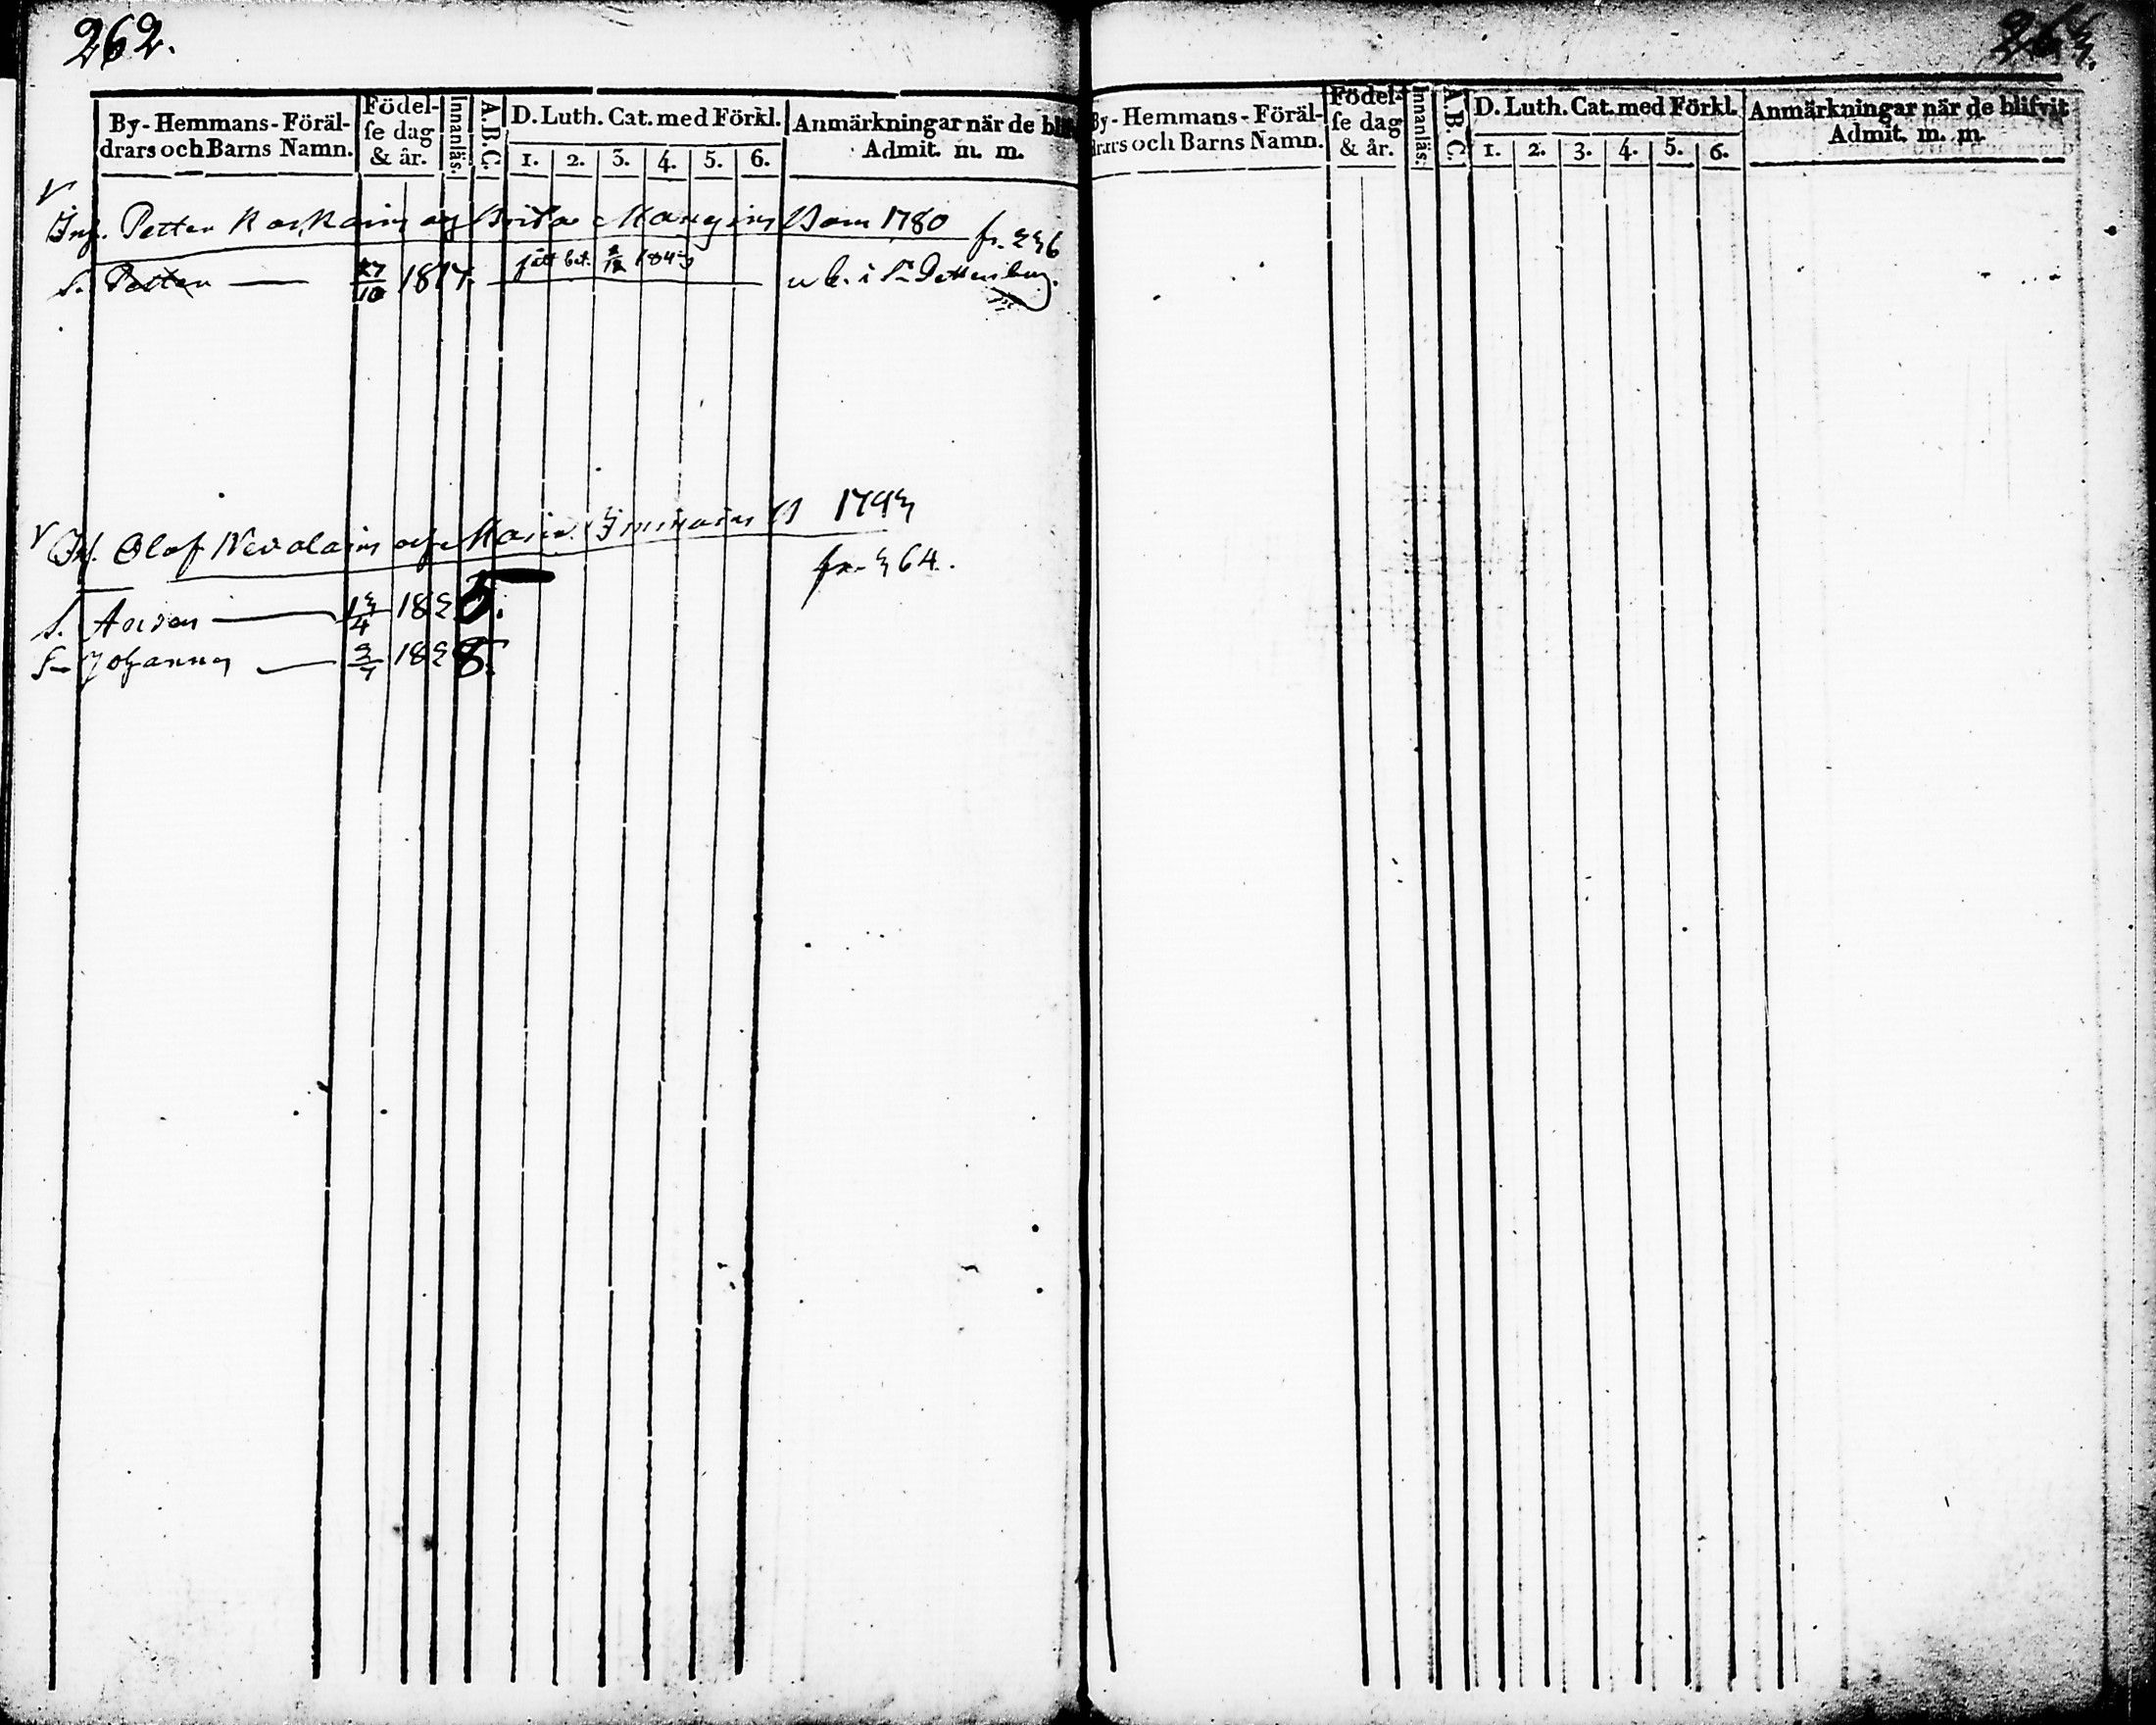 262.
By-Hemmans-Föräl-
drars och Barns Namn.
Födel-
se dag
& år.
Innanläs.
A.B.C.
D. Luth. Cat. med Förkl.
1. 2. 3. 4. 5. 6.
Anmärkningar när de bli
Admit. m. m.
Petter och Brita 1780
fr. 236
S. Petter 27/10 1817. fått bet. 1843 i St. Pettersburg.
Olof och Maria 1793
fr. 364.
S. 13/4 1825.
S. Johannes 3/7 1828.
By-Hemmans-Föräl-
drars och Barns Namn.
Födel-
se dag
& år.
Innanläs.
A.B.C.
D. Luth. Cat. med Förkl.
1. 2. 3. 4. 5. 6.
Anmärkningar när de blifvit
Admit. m. m.